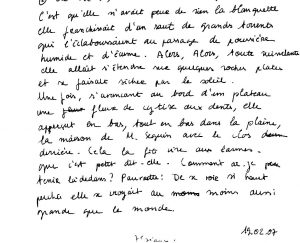 C'est qu'elle n'avait peur de rien la blanquette
elle franchissait d'un saut de grands torrents
qui l'éclaboussaient au passage de poussière
humide et d'écume. Alors, Alors, toute ruisselante
elle allait s'étendre sur quelques rocher plates
et se faisait sécher par le soleil.
Une fois, s'avançant au bord d'un plateau
une fleur de cytise aux dents, elle
aperçut en bas, tout en bas dans la plaine,
la maison de M. Seguin avec le clos
derrière. Cela la fit rire aux larmes.
que c'est petit dit-elle. Comment ai-je pu
tenir là dedans? Pauvrette: De se voir si haut
perchée elle se croyait au moins aussi
grande que le monde.
19.02.07